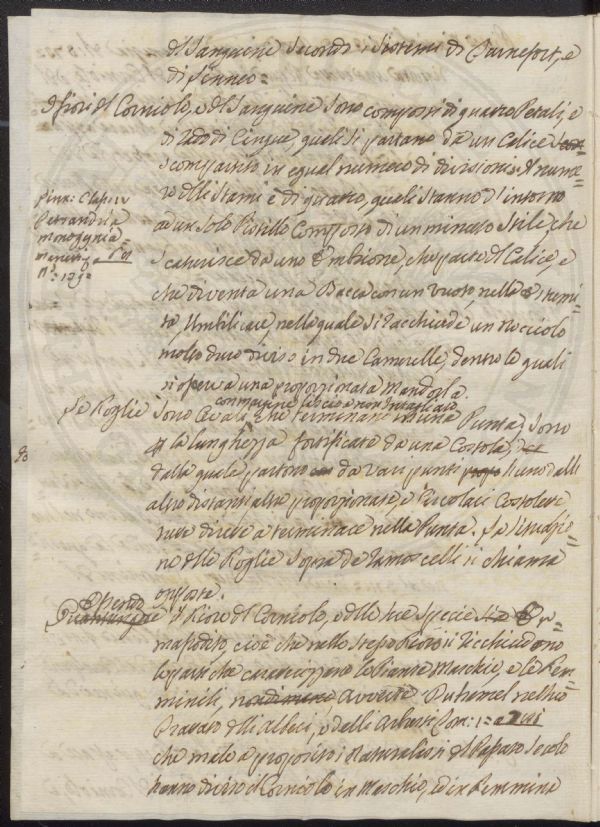 del Sanguine secondo i Sistemi di Turnefort, e
di Linneo =
I fiori del Corniolo, e del Sanguine sono composti di quatro Petali, e
di rado di Cinque, quali si partano da un Calice
scompartito in egual numero di divisioni. Il nume=
ro delli Stami è di quatro, quali stanno d'intorno
ad un solo Pistillo Composto di un minuto Stile, che
scaturisce da uno Embrione, che parte del Calice, e
che diventa una Bacca con un vuoto, nelle stremi=
tà, Umbilicare, nella quale si racchiude un Nocciolo
molto duro diviso in due Camerelle, dentro le quali
si osserva una proporzionata Mandorla.
Linn: Class: IV
Tetrandria
monogynia
n: 139=
contorno liscio e non intagliato
Le Foglie sono Ovali, che terminano in una Punta, sono
la lunghezza fortificate da una Costola,
dalla quale partono da vari punti l'uno all
altro distanti altre proporzionate, e Piccolari Costolette
tutte dirette a terminare nella Punta. La situazio=
ne delle Foglie sopra de Ramoscelli si chiama
opposta.
Essendo
Quantunque il Fiore del Corniolo, e delle tre specie Er=
mafrodito, cioè che nello stesso Fiore si racchiudono
le parti che caratterizzano le Piante Maschie, e le Fem=
minili, nondimeno avverte Duhamel nel suo
Trattato delli Alberi, e delli Arbusti Tom: 1= a 
che male a proposito i Naturalisti del Passato Secolo
hanno diviso il Corniolo in Maschio, ed in Femmina